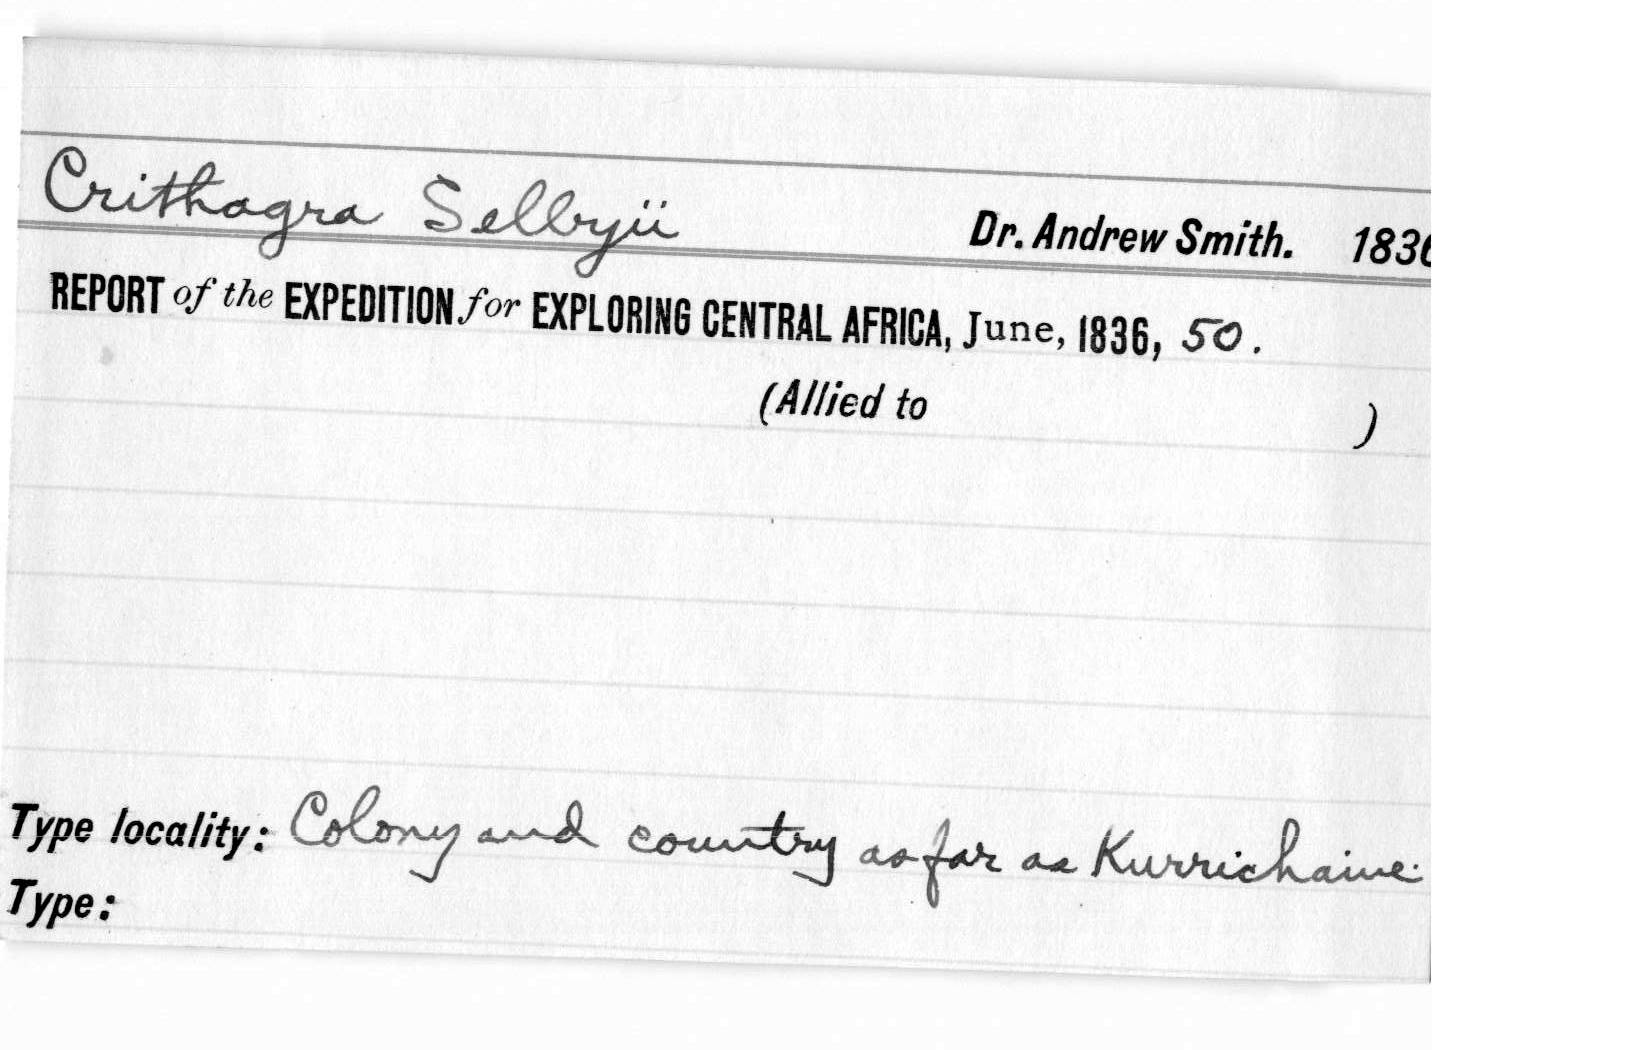 Crithagra Selbyii Dr. Andrew Smith. 1836
REPORT of the EXPEDITION for EXPLORING CENTRAL AFRICA, June, 1836, 50.
(Allied to )
Type locality: Colony and country as far as Kurrichaine.
Type: